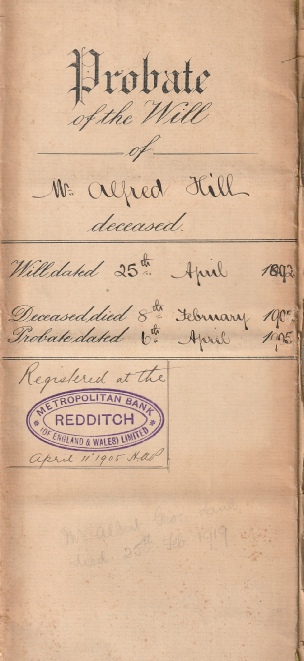 Probate
of the Will
of
Mr. Alfred Hill
deceased.
Will dated 25th April 1892
Deceased died 8th February 1905
Probate dated 6th April 1905
Registered at the
METROPOLITAN BANK
REDDITCH
(OF ENGLAND & WALES) LIMITED
April 11th 1905
died 25th 1919